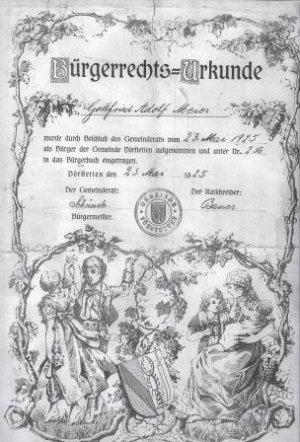 Bürgerrechts=Urkunde
Gottfried Adolf Meier
wurde durch Beschluß des Gemeinderats vom 23. Mai 1925
als Bürger der Gemeinde Dörfletten aufgenommen und unter Nr.
in das Bürgerbuch eingetragen.
Dörfletten den 23. Mai 1925
Der Gemeinderat: Der Ratschreiber:
Bürgermeister.
GEMEINDE